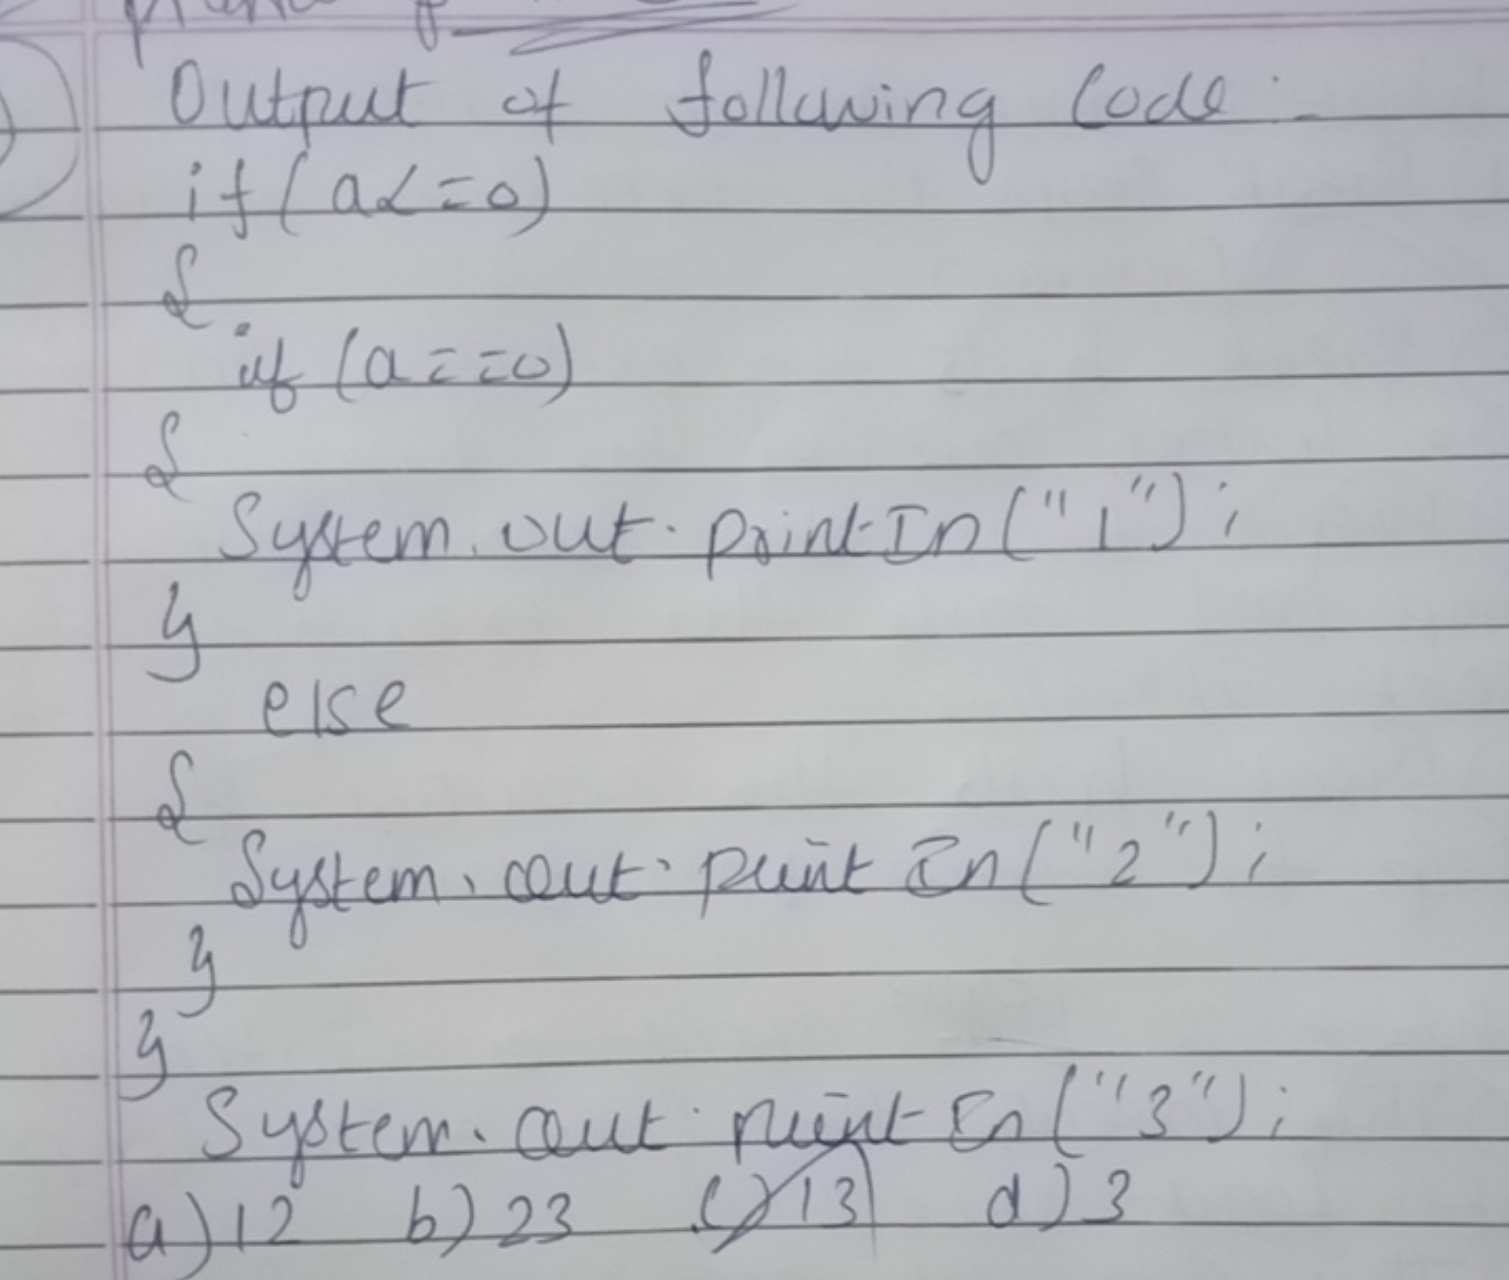 Output of following Code :
if (a<=0)
{
if (a==0)
{
System.out.printIn("1");
}
else
{
System.out.printIn("2");
}
}
System.out.printIn("3");
a) 12 b) 23 c) 13 d) 3